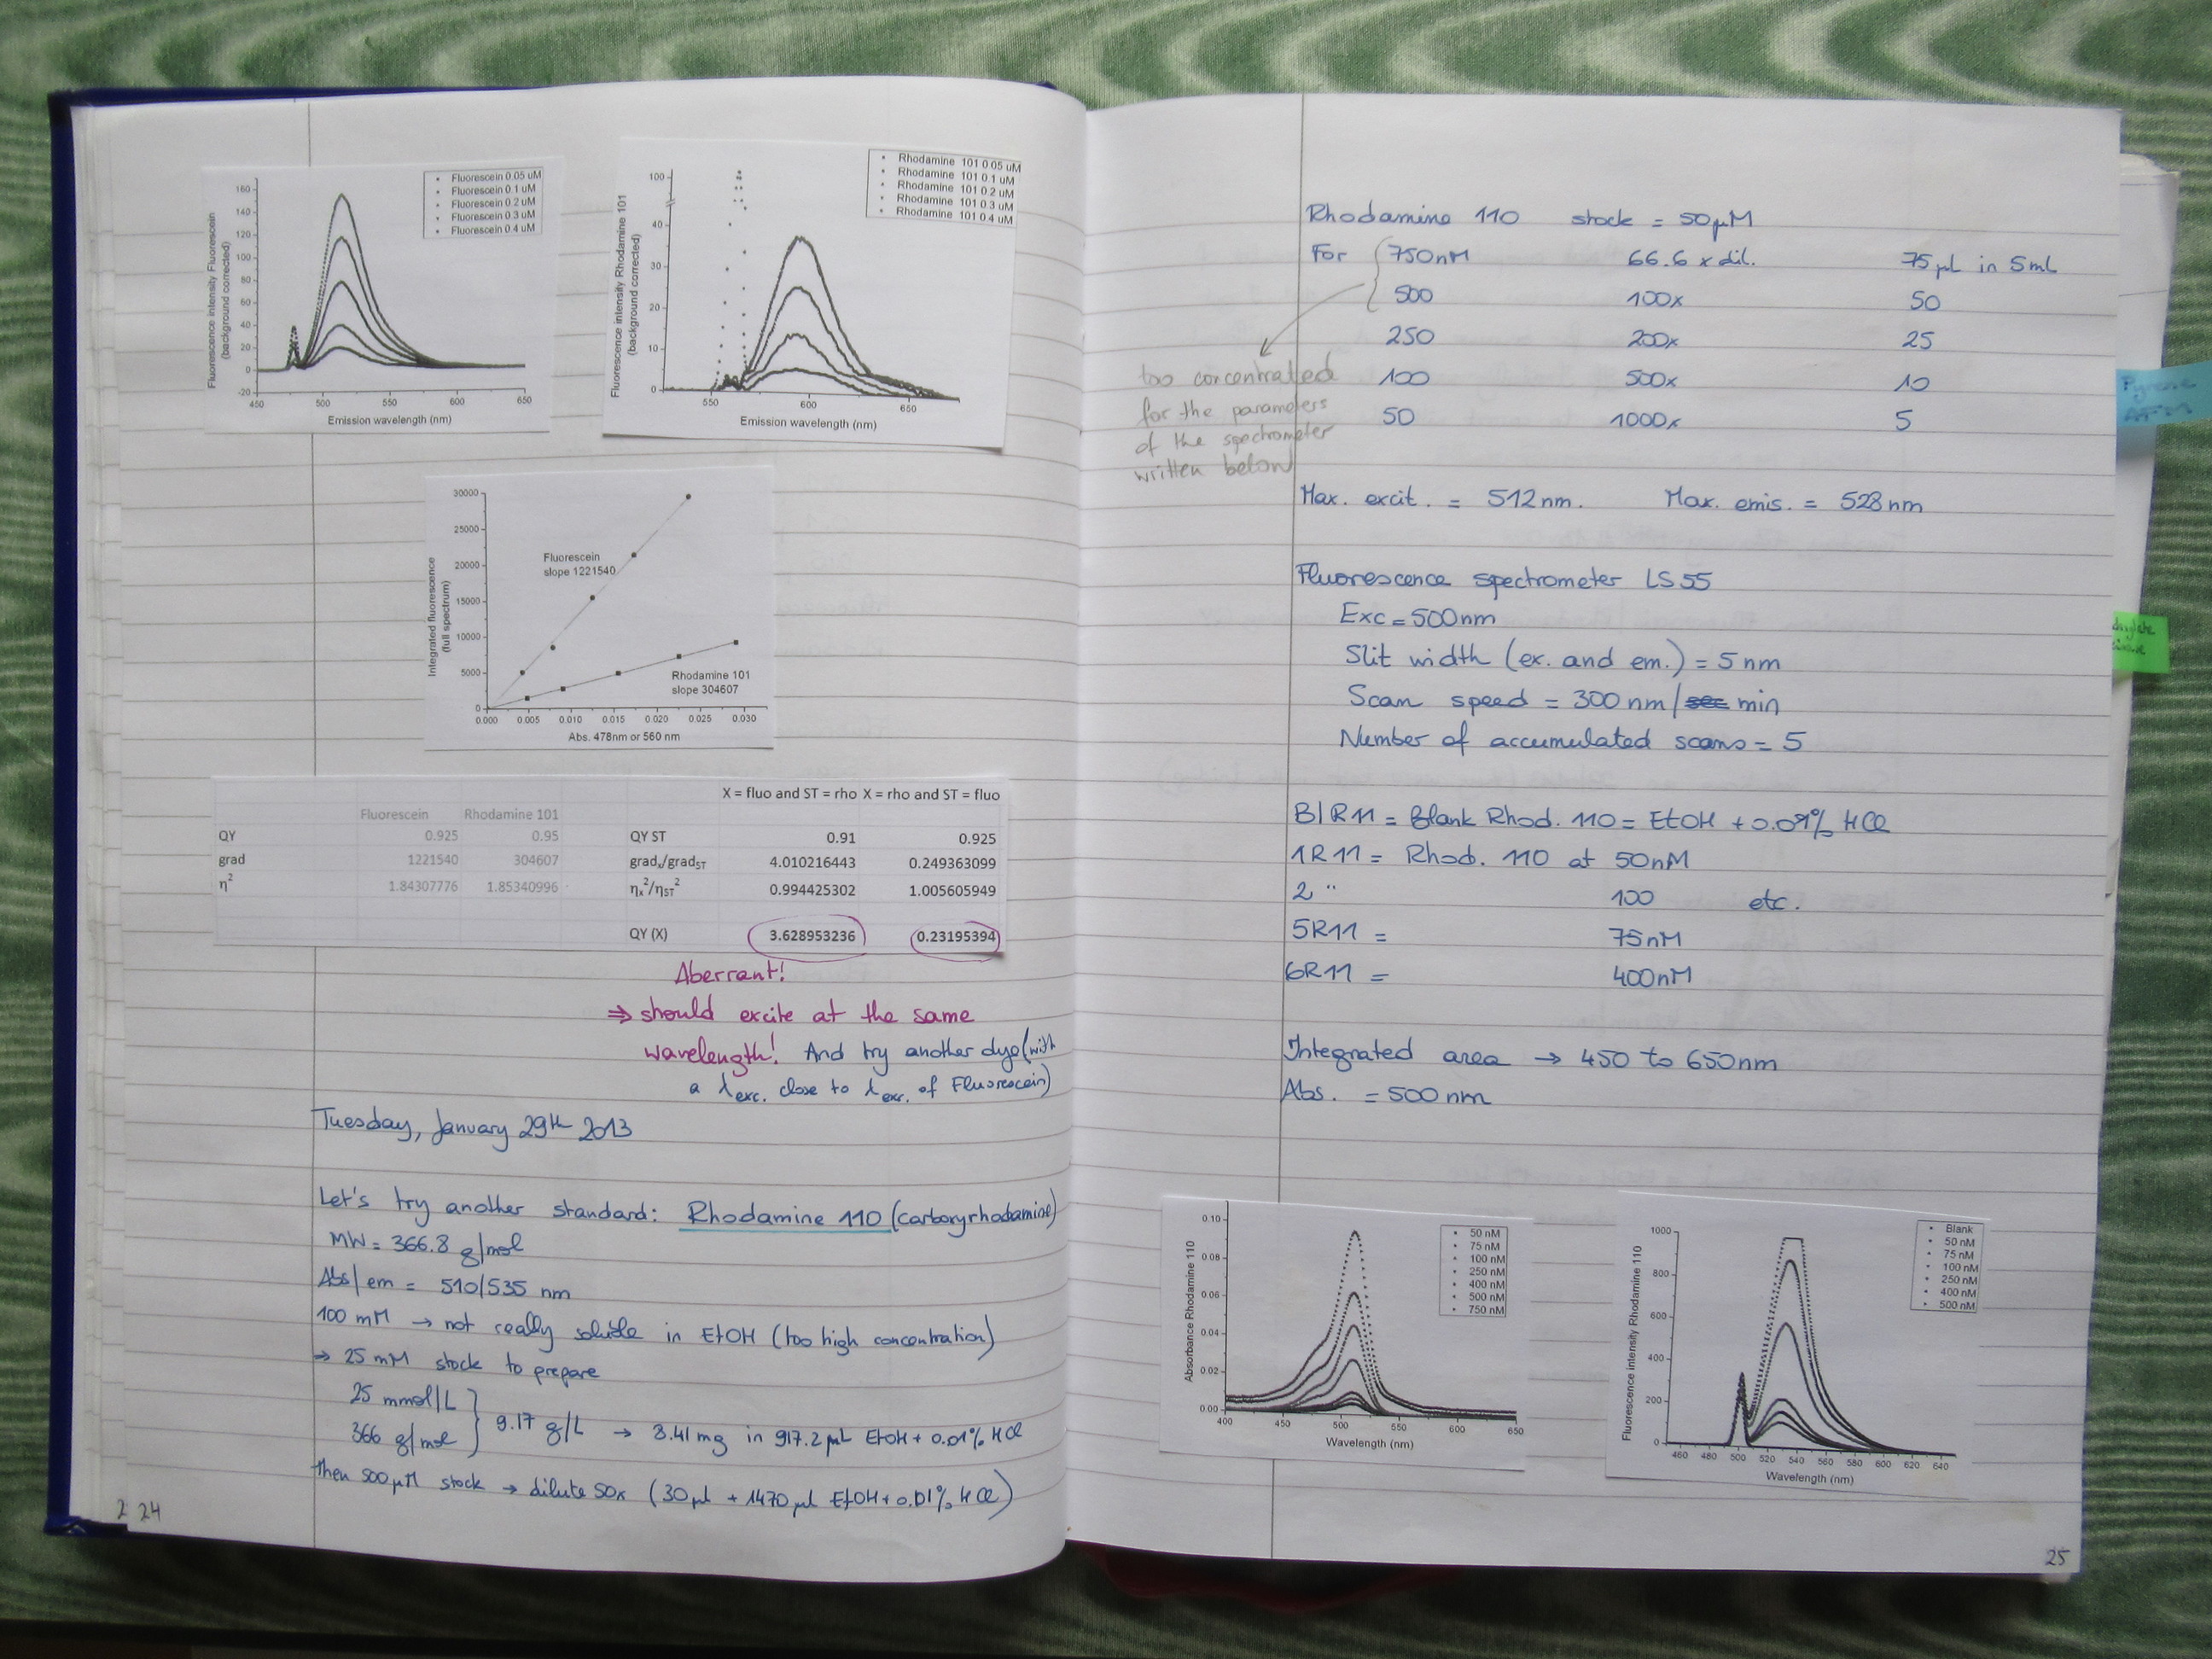 Fluorescein 0.05 uM
Fluorescein 0.1 uM
Fluorescein 0.2 uM
Fluorescein 0.3 uM
Fluorescein 0.4 uM
Fluorescence intensity Fluorescein
(background corrected)
160
140
120
100
80
60
40
20
0
-20
450 500 550 600 650
Emission wavelength (nm)
Rhodamine 101 0.05 uM
Rhodamine 101 0.1 uM
Rhodamine 101 0.2 uM
Rhodamine 101 0.3 uM
Rhodamine 101 0.4 uM
Fluorescence intensity Rhodamine 101
(background corrected)
100
40
30
20
10
0
550 600 650
Emission wavelength (nm)
Integrated fluorescence
(full spectrum)
30000
25000
20000
15000
10000
5000
0
Fluorescein
slope 1221540
Rhodamine 101
slope 304607
0.000 0.005 0.010 0.015 0.020 0.025 0.030
Abs. 478nm or 560 nm
X = fluo and ST = rho X = rho and ST = fluo
Fluorescein Rhodamine 101
QY 0.925 0.95 QY ST 0.91 0.925
grad 1221540 304607 gradx/gradST 4.010216443 0.249363099
η² 1.84307776 1.85340996 ηx²/ηST² 0.994425302 1.005605949
QY (X) 3.628953236 0.23195394
Aberrant!
⇒ should excite at the same
wavelength! And try another dye (with
a λexc. close to λexc. of Fluorescein)
Tuesday, January 29th 2013
Let's try another standard: Rhodamine 110 (carboxyrhodamine)
MW = 366.8 g/mol
Abs/em = 510/535 nm
100 mM → not really soluble in EtOH (too high concentration)
→ 25 mM stock to prepare
25 mmol/L
366 g/mol } 9.17 g/L → 8.41 mg in 917.2 µL EtOH + 0.01% HCl
then 500µM stock → dilute 50x (30 µl + 1470 µl EtOH + 0.01% HCl)
2 24
Rhodamine 110 stock = 50µM
For 750nM 66.6 x dil. 75µL in 5mL
500 100x 50
250 200x 25
100 500x 10
50 1000x 5
too concentrated
for the parameters
of the spectrometer
written below
Max. excit. = 512nm. Max. emis. = 528nm
Fluorescence spectrometer LS55
Exc = 500nm
Slit width (ex. and em.) = 5nm
Scan speed = 300 nm/sec min
Number of accumulated scans = 5
BlR11 = Blank Rhod. 110 = EtOH + 0.01% HCl
1R11 = Rhod. 110 at 50nM
2 " 100 etc.
5R11 = 75nM
6R11 = 400nM
Integrated area → 450 to 650nm
Abs. = 500nm
Absorbance Rhodamine 110
0.10
0.08
0.06
0.04
0.02
0.00
50 nM
75 nM
100 nM
250 nM
400 nM
500 nM
750 nM
400 450 500 550 600 650
Wavelength (nm)
Fluorescence intensity Rhodamine 110
1000
800
600
400
200
0
Blank
50 nM
75 nM
100 nM
250 nM
400 nM
500 nM
460 480 500 520 540 560 580 600 620 640
Wavelength (nm)
25
Pyrene
AFM